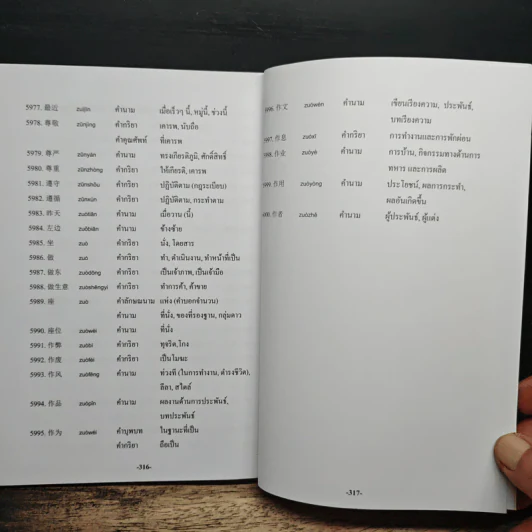 5977. 最近 zuìjìn คำนาม เมื่อเร็วๆ นี้, หมู่นี้, ช่วงนี้
5978. 尊敬 zūnjìng คำกริยา เคารพ, นับถือ
คำคุณศัพท์ ที่เคารพ
5979. 尊严 zūnyán คำนาม ทรงเกียรติภูมิ, ศักดิ์สิทธิ์
5980. 尊重 zūnzhòng คำกริยา ให้เกียรติ, เคารพ
5981. 遵守 zūnshǒu คำกริยา ปฏิบัติตาม (กฎระเบียบ)
5982. 遵循 zūnxún คำกริยา ปฏิบัติตาม, กระทำตาม
5983. 昨天 zuótiān คำนาม เมื่อวาน (นี้)
5984. 左边 zuǒbiān คำนาม ข้างซ้าย
5985. 坐 zuò คำกริยา นั่ง, โดยสาร
5986. 做 zuò คำกริยา ทำ, ดำเนินงาน, ทำหน้าที่เป็น
5987. 做东 zuòdōng คำกริยา เป็นเจ้าภาพ, เป็นเจ้ามือ
5988. 做生意 zuòshēngyi คำกริยา ทำการค้า, ค้าขาย
5989. 座 zuò คำลักษณนาม แห่ง (คำบอกจำนวน)
คำนาม ที่นั่ง, ของที่รองฐาน, กลุ่มดาว
5990. 座位 zuòwèi คำนาม ที่นั่ง
5991. 作弊 zuòbì คำกริยา ทุจริต, โกง
5992. 作废 zuòfèi คำกริยา เป็นโมฆะ
5993. 作风 zuòfēng คำนาม ท่วงที (ในการทำงาน, ดำรงชีวิต),
ลีลา, สไตล์
5994. 作品 zuòpǐn คำนาม ผลงานด้านการประพันธ์,
บทประพันธ์
5995. 作为 zuòwéi คำบุพบท ในฐานะที่เป็น
คำกริยา ถือเป็น
-316-
5996. 作文 zuòwén คำนาม เขียนเรียงความ, ประพันธ์,
บทเรียงความ
5997. 作息 zuòxī คำกริยา การทำงานและการพักผ่อน
5998. 作业 zuòyè คำนาม การบ้าน, กิจกรรมทางด้านการ
ทหาร และการผลิต
5999. 作用 zuòyòng คำนาม ประโยชน์, ผลการกระทำ,
ผลอันเกิดขึ้น
6000. 作者 zuòzhě คำนาม ผู้ประพันธ์, ผู้แต่ง
-317-